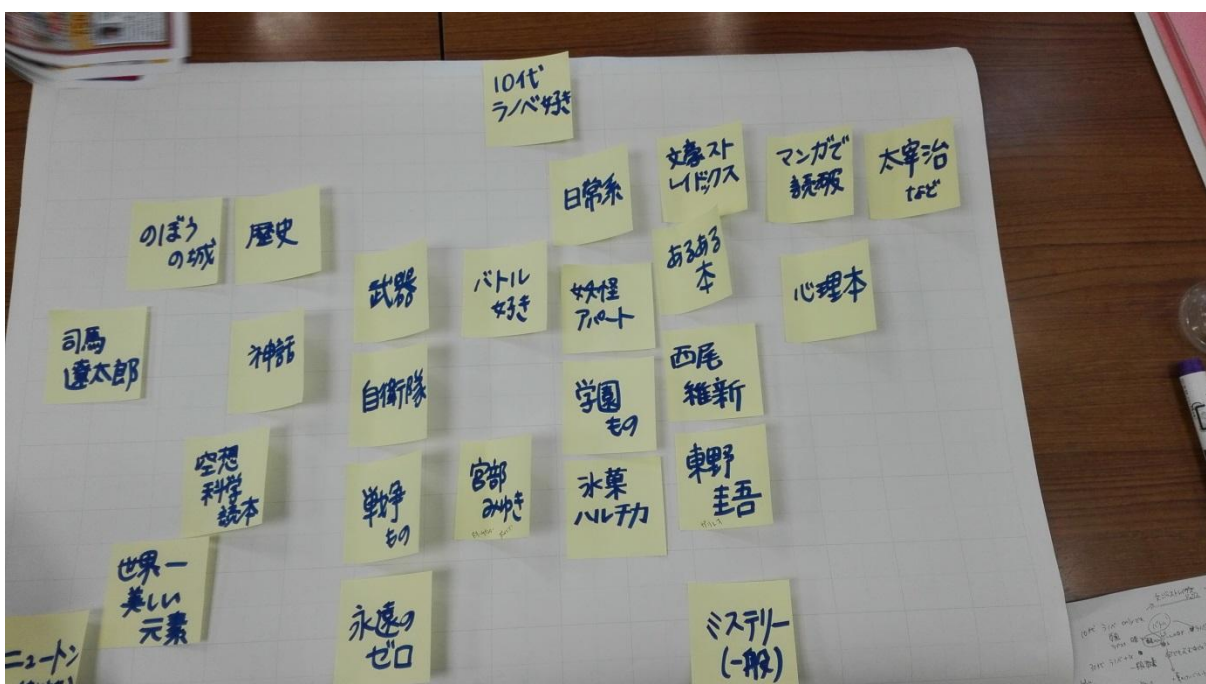 10代
ラノベ好き
日常系
文豪スト
レイドックス
マンガで
読破
太宰治
など
のぼう
の城
歴史
武器
バトル
好き
妖怪
アパート
あるある
本
心理本
司馬
遼太郎
神話
自衛隊
学園
もの
西尾
維新
空想
科学
読本
戦争
もの
宮部
みゆき
氷菓
ハルチカ
東野
圭吾
世界一
美しい
元素
永遠の
ゼロ
ミステリー
(一般)
ニュートン